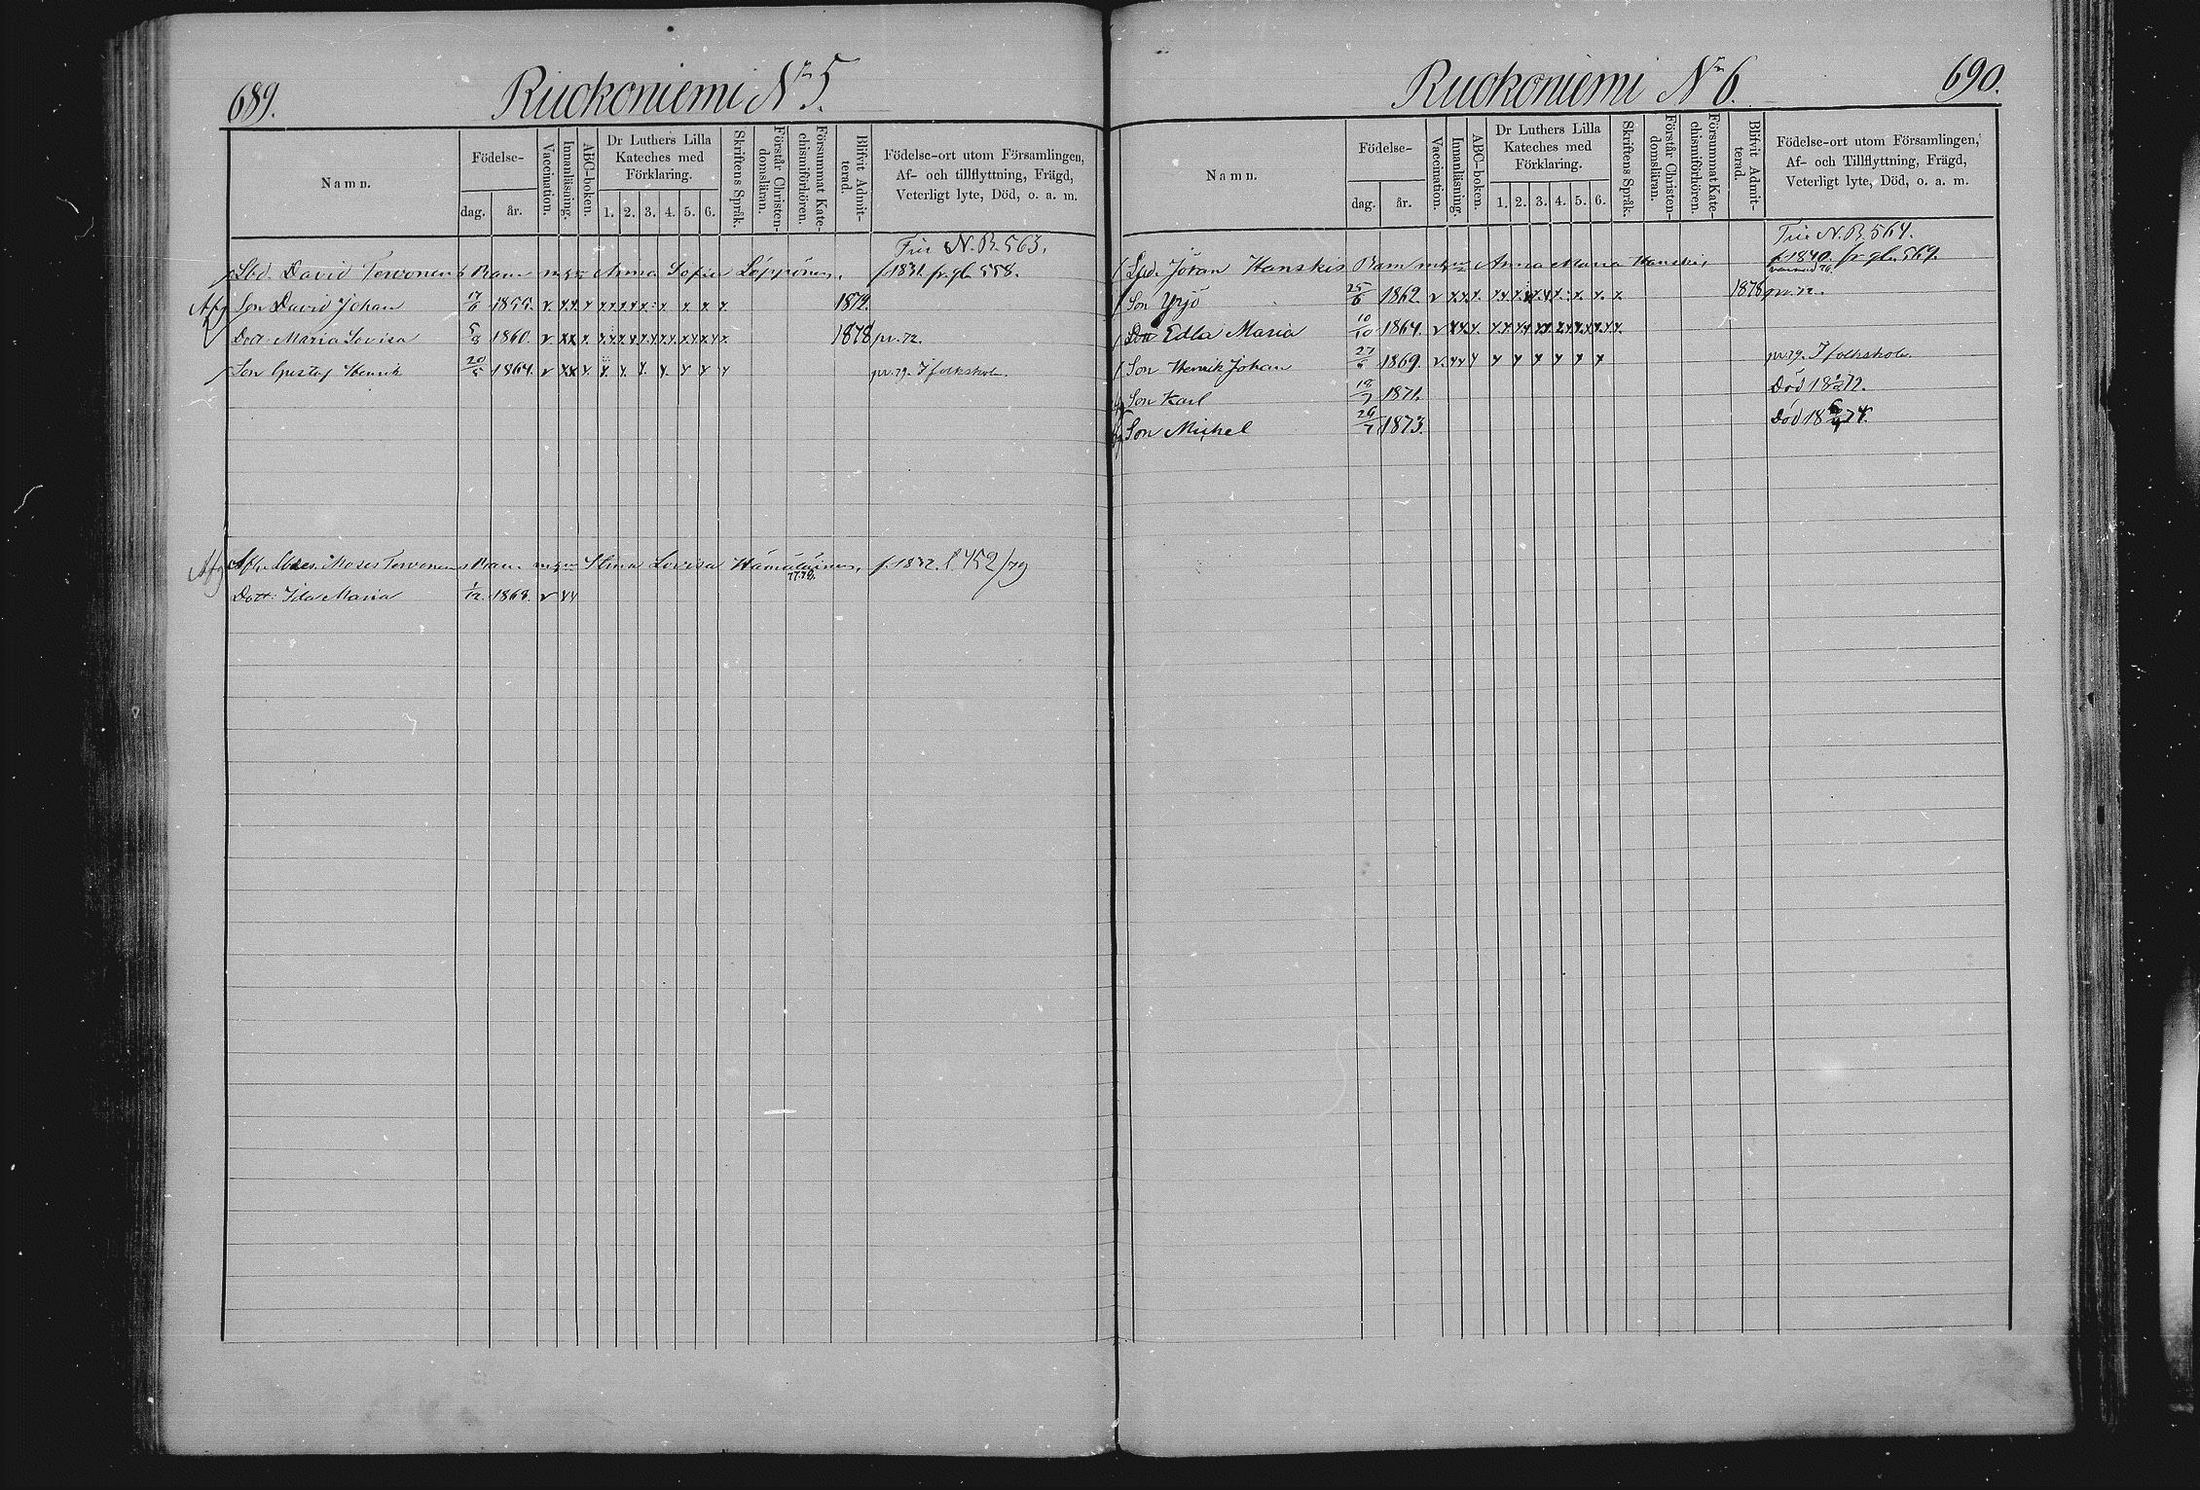 689.
Ruokoniemi No 5.
Namn.
Födelse-
dag.
år.
Vaccination.
Innanläsning.
ABC-boken.
Dr Luthers Lilla
Kateches med
Förklaring.
1. 2. 3. 4. 5. 6.
Skriftens Språk.
Förstår Christen-
domsläran.
Försummat Kate-
chismiförhören.
Blifvit Admit-
terad.
Födelse-ort utom Församlingen,
Af- och tillflyttning, Frägd,
Veterligt lyte, Död, o. a. m.
N.B. 563.
David Tervonens Barn Anna Sofia Leppönen, f 1831. fr. gb. 558.
Son David Johan 1855. v x x x x x x x x x x 1872.
Dott. Maria Lovisa 1860. v x x x x x x x x x x 1878 pr. 72.
Son Gustaf Henrik 20/5 1864. v x x x x x x x x x x pr. 79. I folkskola.
Moses Tervonens Barn Stina Lovisa Hämäläinen, f. 1832. 452/79
77.78.
Dott. Ida Maria 1/12. 1868. v x x
690.
Ruokoniemi No 6.
Namn.
Födelse-
dag.
år.
Vaccination.
Innanläsning.
ABC-boken.
Dr Luthers Lilla
Kateches med
Förklaring.
1. 2. 3. 4. 5. 6.
Skriftens Språk.
Förstår Christen-
domsläran.
Försummat Kate-
chismiförhören.
Blifvit Admit-
terad.
Födelse-ort utom Församlingen,
Af- och Tillflyttning, Frägd,
Veterligt lyte, Död, o. a. m.
N.B. 564.
Jöran Hanskis Barn Anna Maria Hanski, f 1840. fr. gb. 569.
Son Yrjö 25/6 1862. v x x x x x x x x x x 1878 pr. 72.
Dott Edla Maria 10/10 1864. v x x x x x x x x x x
Son Henrik Johan 1869. v x x x x x x x x x pr. 79. I folkskola.
Son Karl 18/7 1871. Död 72.
Son Michel 29/7 1873. Död 74.